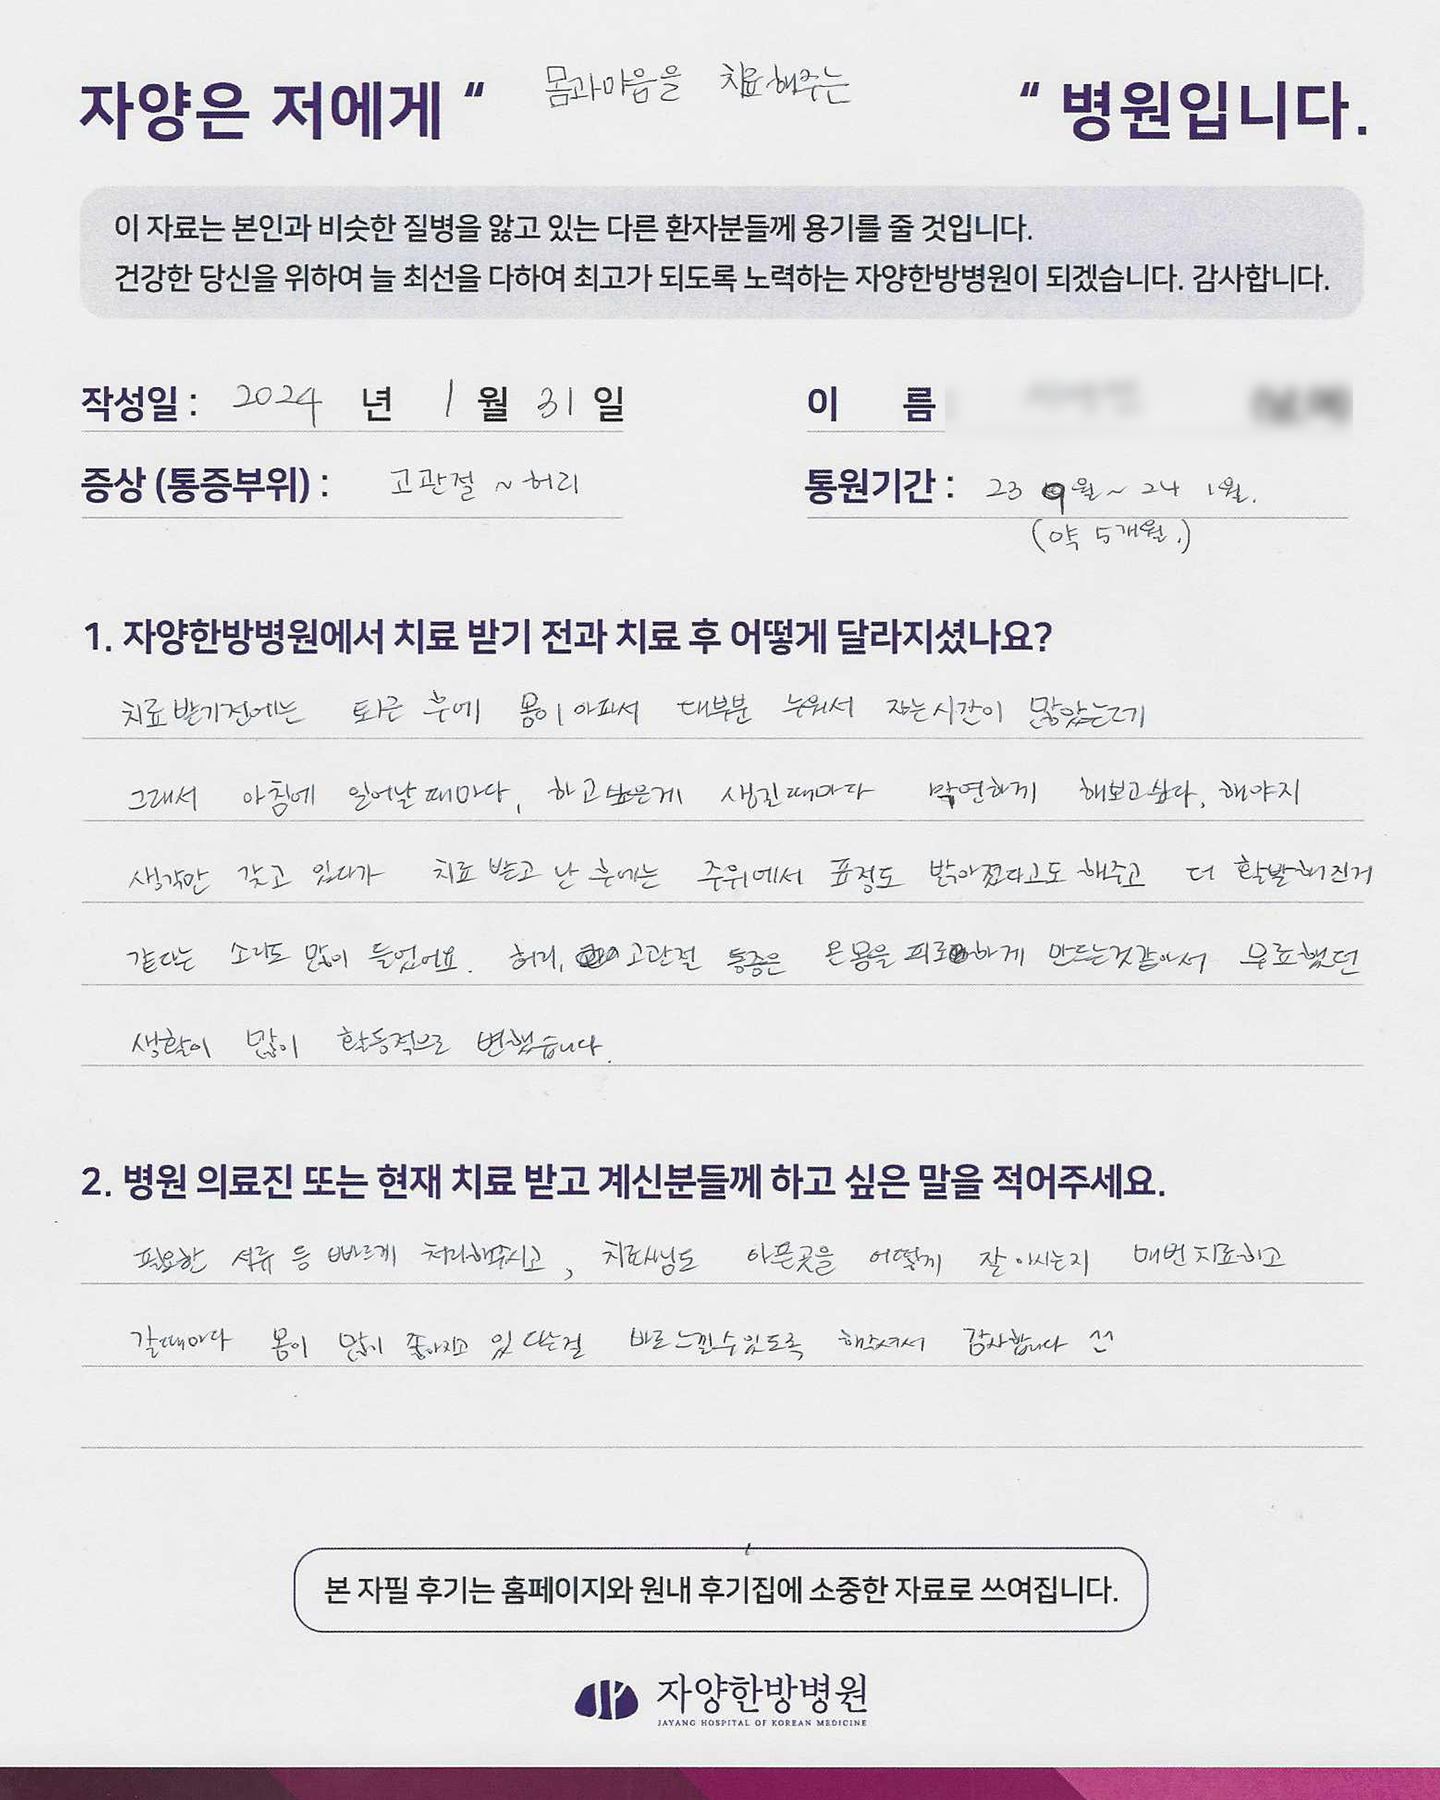 자양은 저에게 " 몸과마음을 치료해주는 " 병원입니다.
이 자료는 본인과 비슷한 질병을 앓고 있는 다른 환자분들께 용기를 줄 것입니다.
건강한 당신을 위하여 늘 최선을 다하여 최고가 되도록 노력하는 자양한방병원이 되겠습니다. 감사합니다.
작성일 : 2024 년 1 월 31 일
이 름
증상 (통증부위) : 고관절 ~ 허리
통원기간 : 23 9월 ~ 24 1월.
(약 5개월.)
1. 자양한방병원에서 치료 받기 전과 치료 후 어떻게 달라지셨나요?
치료받기전에는 퇴근 후에 몸이 아파서 대부분 누워서 자는시간이 많았는데
그래서 아침에 일어날때마다, 하고싶은게 생긴때마다 막연하게 해보고싶다, 해야지
생각만 갖고 있다가 치료 받고 난 후에는 주위에서 표정도 밝아졌다고도 해주고 더 활발해진거
같다는 소리도 많이 들었어요. 허리, 고관절 통증은 온몸을 피로하게 만드는것같아서 무료했던
생활이 많이 활동적으로 변했습니다.
2. 병원 의료진 또는 현재 치료 받고 계신분들께 하고 싶은 말을 적어주세요.
필요한 서류 등 빠르게 처리해주시고, 치료쌤도 아픈곳을 어떻게 잘 아시는지 매번 치료하고
갈때마다 몸이 많이 좋아지고 있다는걸 바로 느낄수있도록 해주셔서 감사합니다 ^^
본 자필 후기는 홈페이지와 원내 후기집에 소중한 자료로 쓰여집니다.
자양한방병원
JAYANG HOSPITAL OF KOREAN MEDICINE